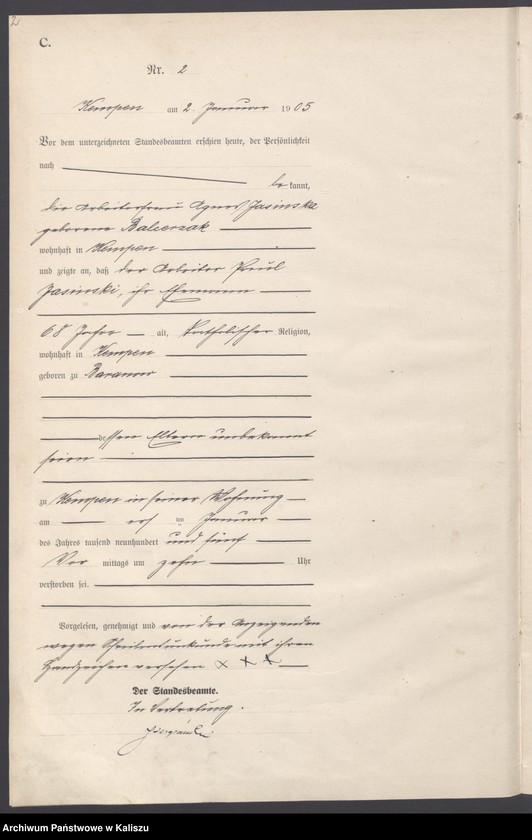 2
C.
Nr. 2
Kempen am 2. Januar 1905
Vor dem unterzeichneten Standesbeamten erschien heute, der Persönlichkeit
nach
bekannt,
die Arbeiterfrau Agnes Jasinska
geborene Balcerzak
wohnhaft in Kempen
und zeigte an, daß der Arbeiter Paul
Jasinski, ihr Ehemann
68 Jahre alt, katholischer Religion,
wohnhaft in Kempen
geboren zu Baranow
dessen Eltern unbekannt
seien
zu Kempen in seiner Wohnung
am ersten Januar
des Jahres tausend neunhundert und fünf
Vor mittags um zehn Uhr
verstorben sei.
Vorgelesen, genehmigt und von der Anzeigenden
wegen Schreibunkunde mit ihren
Handzeichen versehen X X X
Der Standesbeamte.
In Vertretung.
Archiwum Państwowe w Kaliszu